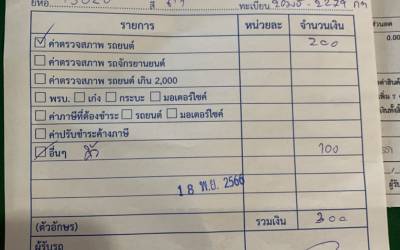 ยี่ห้อ
สี
ทะเบียน
รายการ หน่วยละ จำนวนเงิน
ค่าตรวจสภาพ รถยนต์ 200
ค่าตรวจสภาพ รถจักรยานยนต์
ค่าตรวจสภาพ รถยนต์ เกิน 2,000
พรบ. เก๋ง กระบะ มอเตอร์ไซค์
ค่าภาษีที่ต้องชำระ รถยนต์ มอเตอร์ไซค์
ค่าปรับชำระค้างภาษี
อื่นๆ 100
18 พ.ย. 2566
(ตัวอักษร) รวมเงิน 300
ผู้รับรถ
0.00